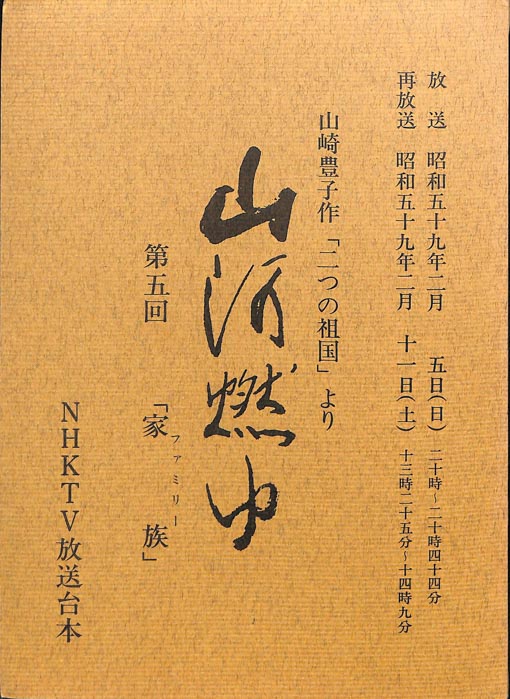 放　送　昭和五十九年二月　五日(日)　二十時～二十時四十四分
再放送　昭和五十九年二月　十一日(土)　十三時二十五分～十四時九分
山崎豊子作「二つの祖国」より
山河燃ゆ
第五回　「家族」
ファミリー
NHKTV放送台本